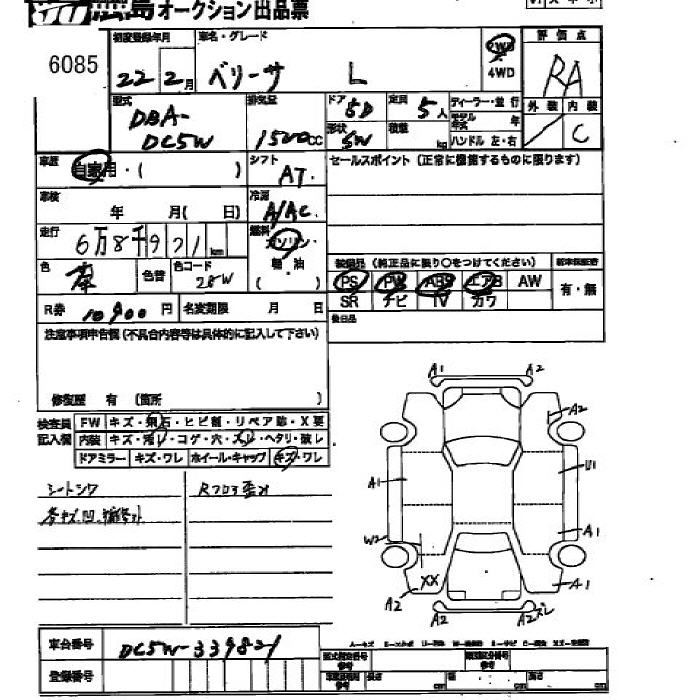 島オークション出品票
6085
初度登録年月
車名・グレード
22 2月
ベリーサ L
2WD
4WD
評価点
RA
外装 内装
C
型式
DBA-
DC5W
排気量
1500cc
ドア 5D
定員 5人
ディーラー・並行
モデル年式 年
形状 SW
積載 kg
ハンドル 左・右
車歴
自家用・( )
シフト
AT
セールスポイント(正常に機能するものに限ります)
車検
年 月( 日)
冷房
A/AC
走行
6万8千971km
燃料
ガソリン・
軽・油
( )
色
色替
色コード
28W
装備品(純正品に限り○をつけてください)
PS PW ABS エアB AW
SR ナビ TV カワ
有・無
後日品
R券 10900円
名変期限 月 日
注意事項申告欄(不具合内容等は具体的に記入して下さい)
修復歴 有 (箇所 )
検査員
記入欄
FW キズ・飛石・ヒビ割・リペア跡・X要
内装 キズ・汚レ・コゲ・穴・スレ・ヘタリ・破レ
ドアミラー キズ・ワレ ホイール・キャップ キズ・ワレ
シートシワ
Rフロア歪み
A1 A2
A2
A1 U1
A1
W2
XX
A2 A1
A2 A2スレ
車台番号 DC5W-339821
登録番号
型式指定番号
類別区分番号
長さ cm 幅 cm 高さ cm